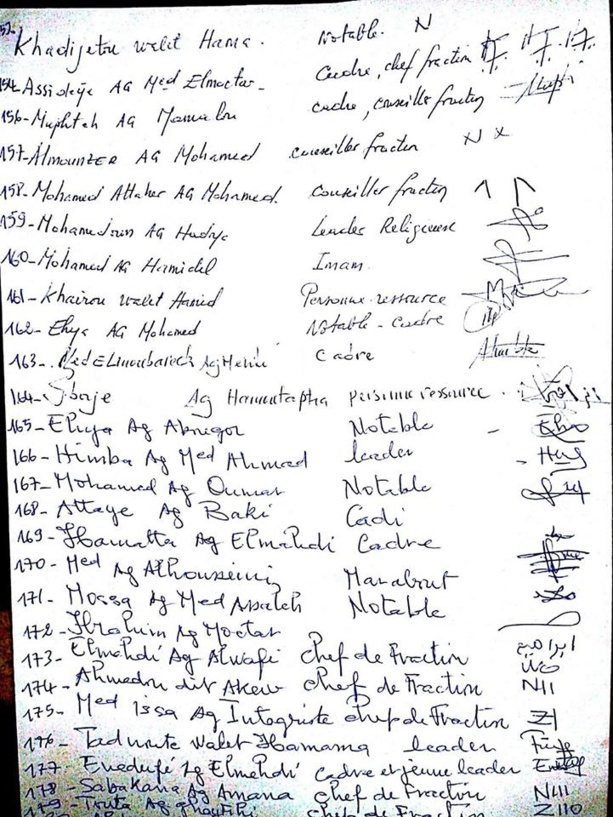 Khadijetou walet Hama. Notable. N
Assideye Ag Med Elmoctar Cadre, chef fraction
156- Muphtah AG cadre, conseiller fraction
157- Almounzer Ag Mohamed conseiller fraction N x
158- Mohamed Attaher AG Mohamed. Conseiller fraction
159- Mohamedoun AG Leader Religieuse
160- Mohamed AG Hamidil Imam
161- Khairou walet Hamid Personne ressource
162- Ehya AG Mohamed Notable - Cadre
163- Med Elmoubareck Ag Cadre
164- Ag Hamontapha personne ressource.
165- Ehya Ag Notable
166- Himba Ag Med Ahmad leader
167- Mohamed Ag Oumar Notable
168- Attaye Ag Baki Cadi
169- Hamatta Ag Elmehdi Cadre
170- Med Ag Alhousseini Marabout
171- Mossa Ag Med Assaleh Notable
172- Ibrahim Ag Moctar
173- Elmehdi Ag Alwafi chef de Fraction
174- Ahmedou dit Akew chef de Fraction NII
175- Med issa Ag Integriste chef de Fraction ZI
176- Tadwite Walet Hamama leader
177- Enedufé Ag Elmehdi cadre et jeune leader
178- Sabakana Ag Amana chef de Fraction NIII
179- Touta Ag chef de Fraction ZIIO